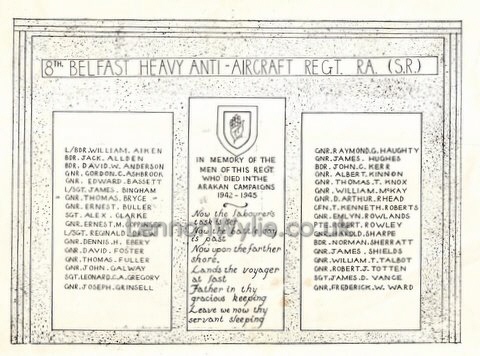 8TH. BELFAST HEAVY ANTI-AIRCRAFT REGT. RA. (S.R.)
L/BDR. WILLIAM. AIKEN
BDR. JACK. ALLDEN
BDR. DAVID. W. ANDERSON
GNR. GORDON. C. ASHBROOK
GNR. EDWARD. BASSETT
L/SGT. JAMES. BINGHAM
GNR. THOMAS. BRYCE
GNR. ERNEST. BULLER
SGT. ALEX. CLARKE
GNR. ERNEST. M.
L/SGT. REGINALD.
GNR. DENNIS. H. EBERY
GNR. DAVID. FOSTER
GNR. THOMAS. FULLER
GNR. JOHN. GALWAY
SGT. LEONARD. C.A. GREGORY
GNR. JOSEPH. GRINSELL
IN MEMORY OF THE
MEN OF THIS REGT.
WHO DIED IN THE
ARAKAN CAMPAIGNS
1942 - 1945
Now the labourer's
task is o'er
is past
Now upon the farther
shore,
Lands the voyager
at last
Father in thy
gracious keeping
Leave we now thy
servant sleeping
GNR. RAYMOND. G. HAUGHTY
GNR. JAMES. HUGHES
BDR. JOHN. C. KERR
GNR. ALBERT. KINNON
GNR. THOMAS. T. KNOX
GNR. WILLIAM. McKAY
GNR. D. ARTHUR. RHEAD
CFN. T. KENNETH. ROBERTS
GNR. EVLYN. ROWLANDS
GNR. ROBERT. ROWLEY
GNR. HAROLD. SHARPE
BDR. NORMAN. SHERRATT
GNR. JAMES. SHIELDS
GNR. WILLIAM. T. TALBOT
GNR. ROBERT. J. TOTTEN
SGT. JAMES. D. VANCE
GNR. FREDERICK. W. WARD